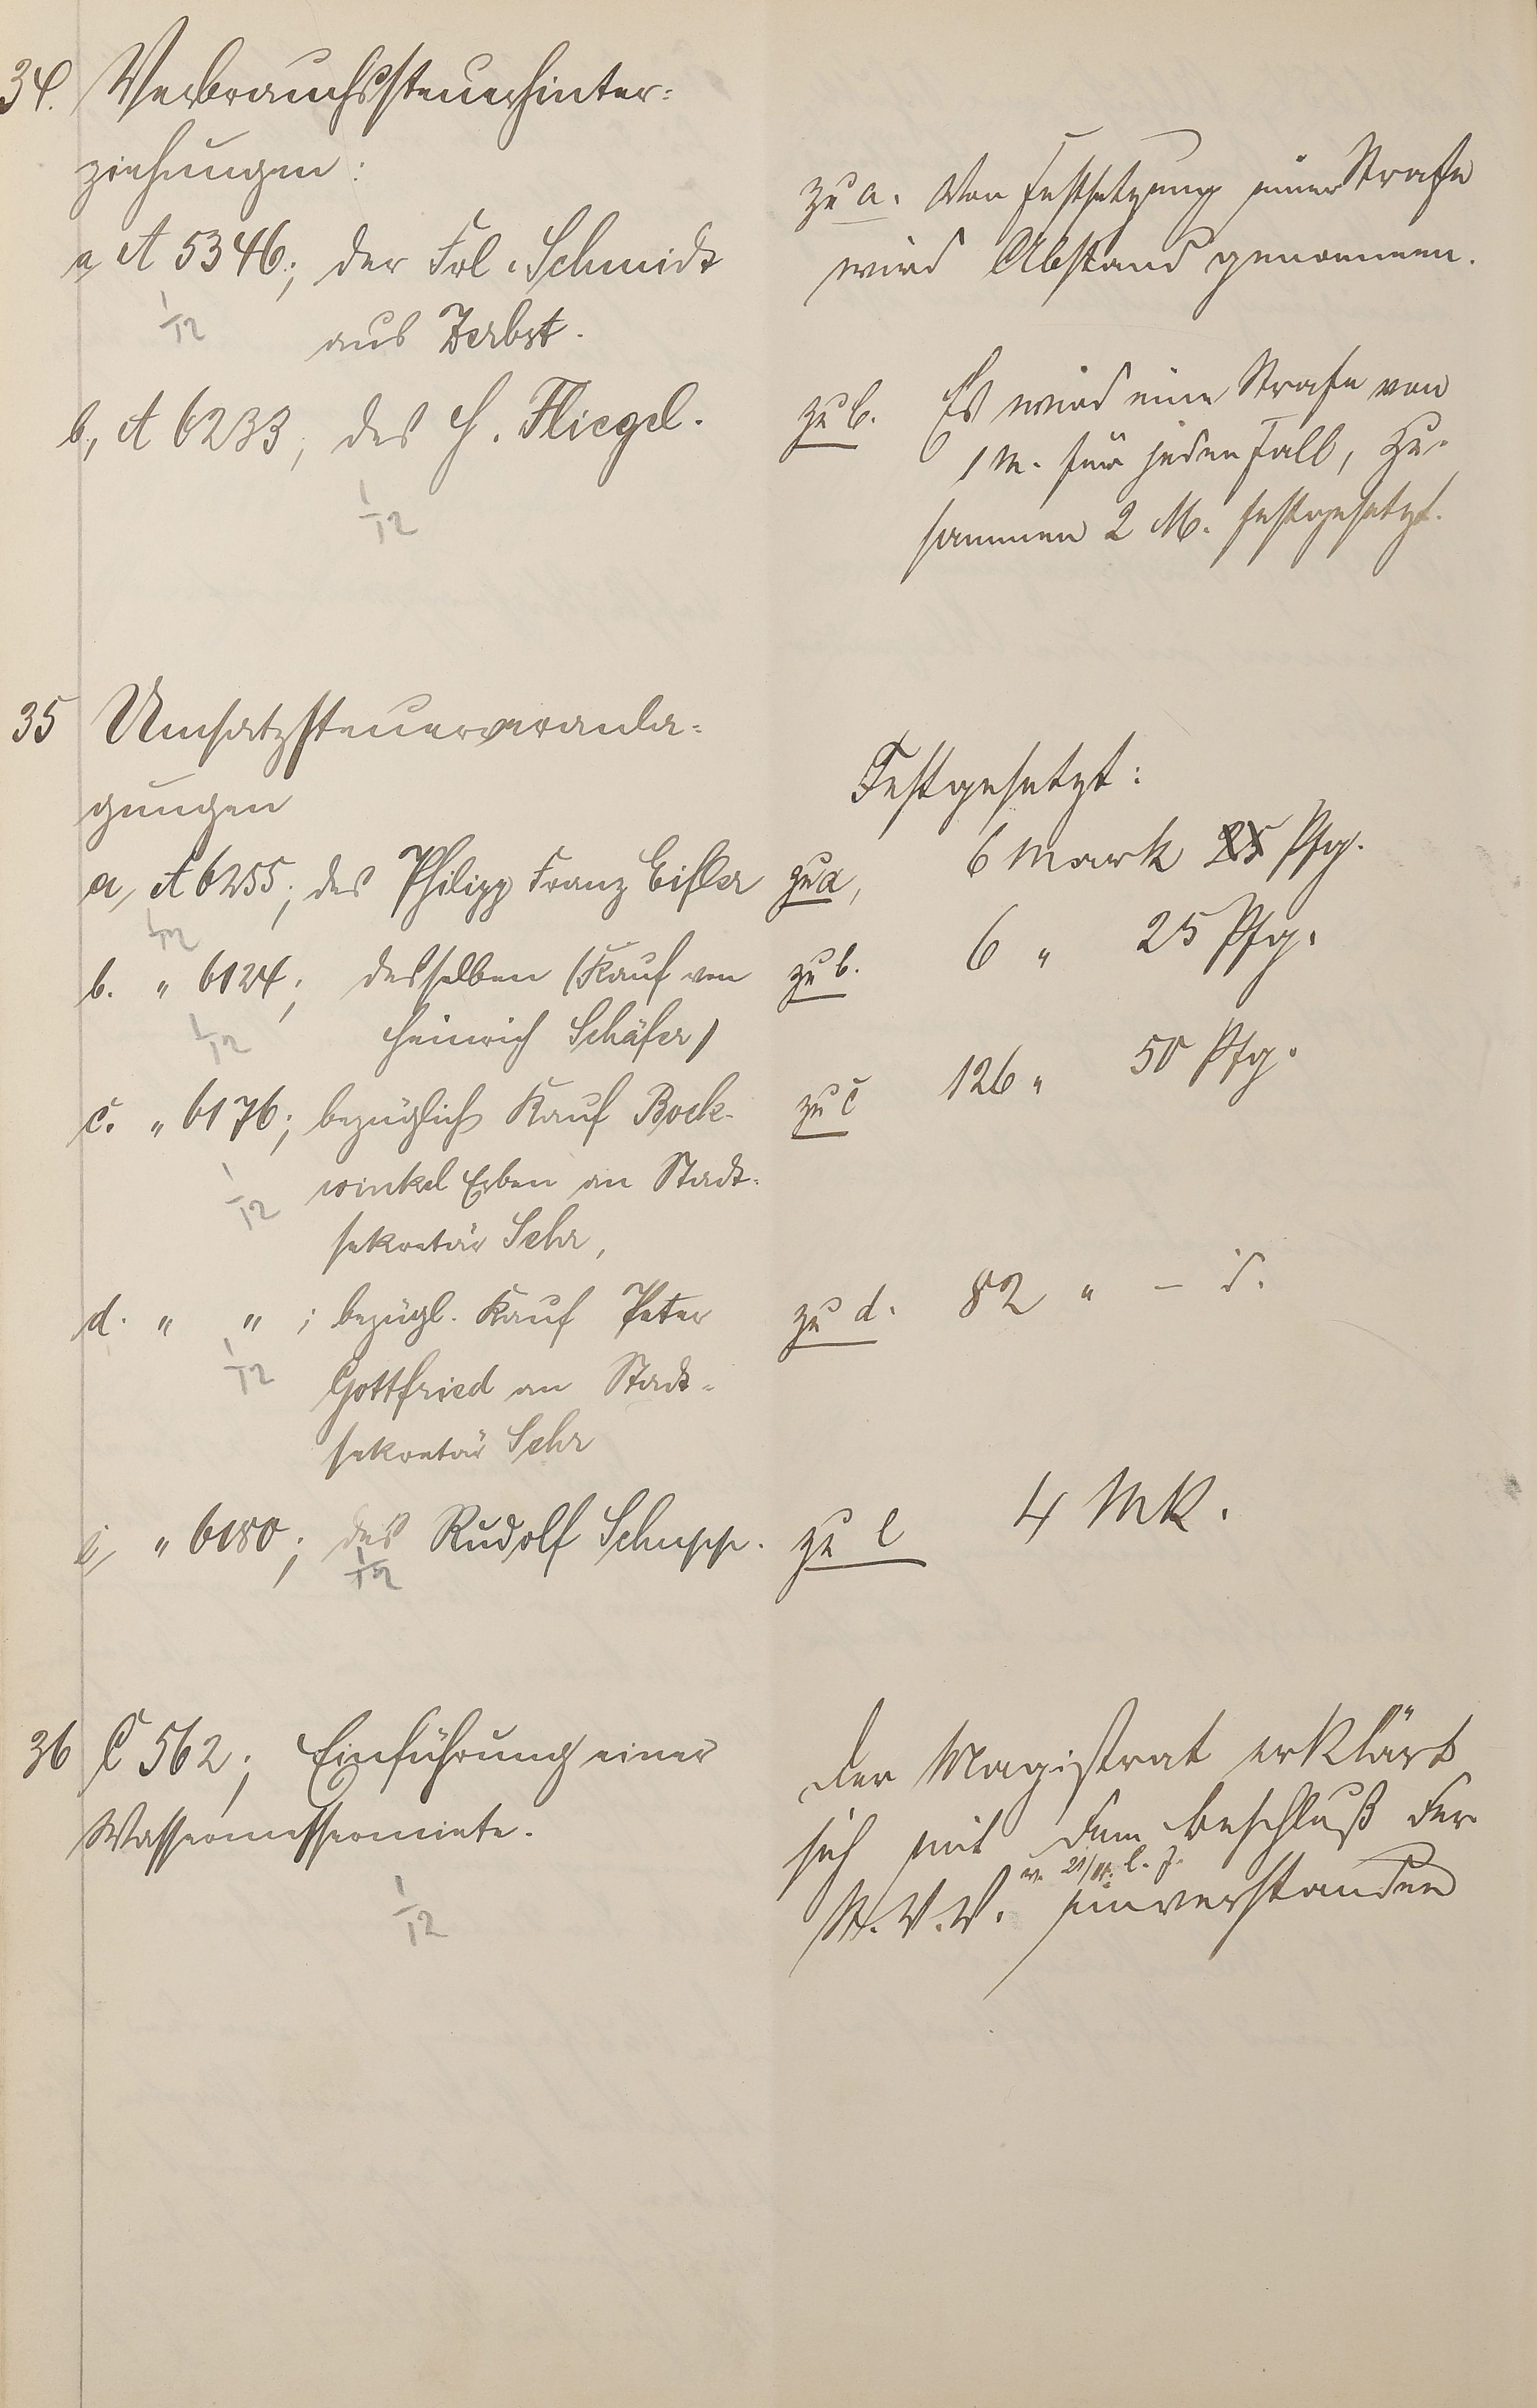 34. Verbrauchssteuerhinter=
ziehungen:
a, A 5346; der Frl. Schmidt
1/12
aus Zerbst.
b, A 6233; des H. Fliegel.
1/12
zu a. Von Festsetzung einer Strafe
wird Abstand genommen.
zu b. Es wird eine Strafe von
1 M. für jeden Fall, zu-
sammen 2 M. festgesetzt.
35 Umsatzsteuerveranla=
gungen
Festgesetzt:
a, A 6255; des Philipp Franz Eisler
1/12
zu a, 6 Mark 25 Pfg.
b. " 6124; desselben (Kauf von
1/12
Heinrich Schäfer)
zu b. 6 " 25 Pfg.
c. " 6176; bezüglich Kauf Bock-
1/12
winkel Erben an Stadt-
sekretär Sehr,
zu c 126 " 50 Pfg.
d. " " ; bezügl. Kauf Peter
1/12
Gottfried an Stadt-
sekretär Sehr
zu d. 82 " –
e, " 6180; des Rudolf Schupp.
1/12
zu e 4 Mk.
36 C 562; Einführung einer
Wassermessermiete.
1/12
Der Magistrat erklärt
sich mit dem Beschluß der
v. 21/11. l. J.
St. V. V. einverstanden